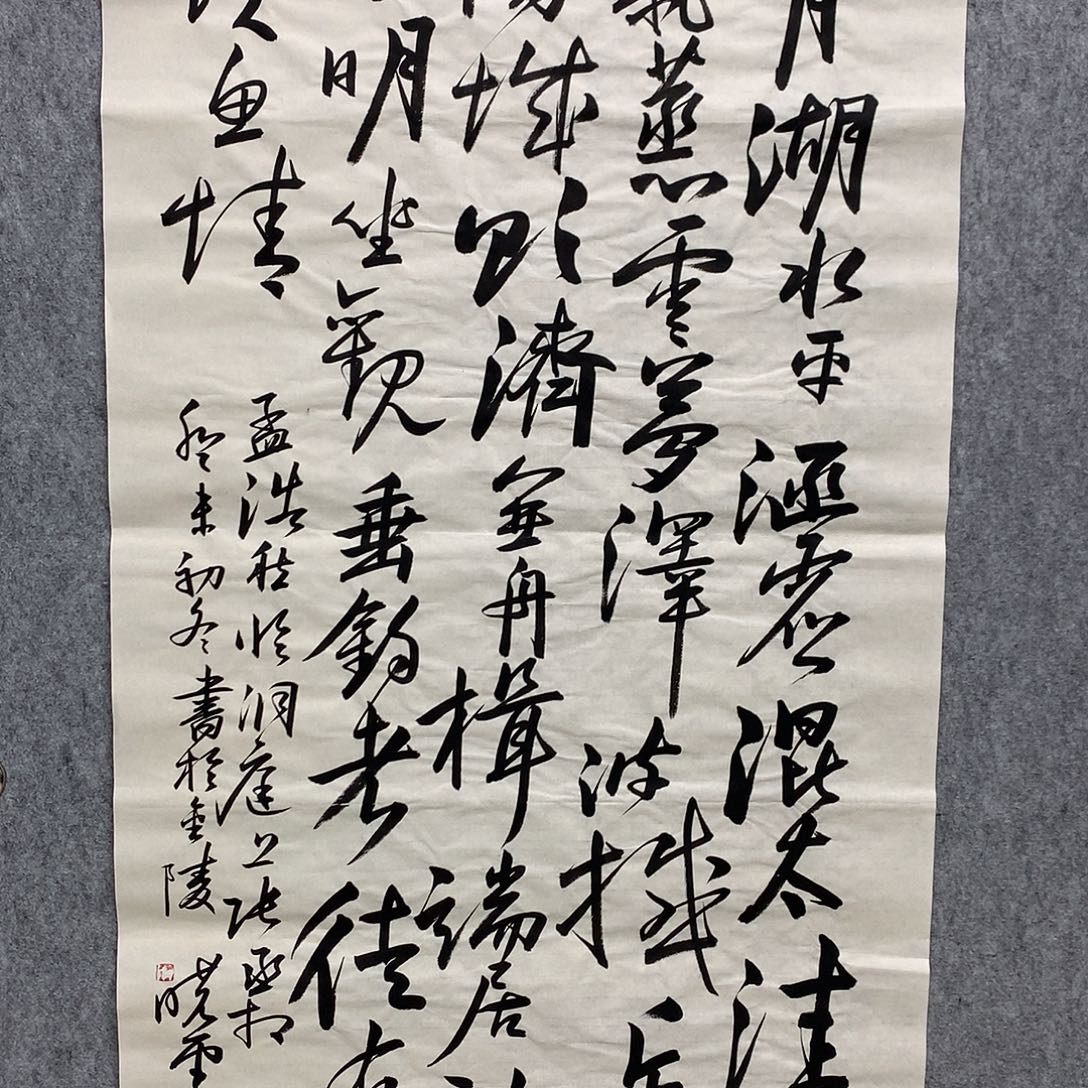 月湖水平涵虛混太清
氣蒸雲夢澤波撼岳
陽城欲濟無舟楫端居
明坐觀垂釣者徒有
羨魚情
孟浩然臨洞庭上張丞相
癸未初冬書於金陵 曉雲